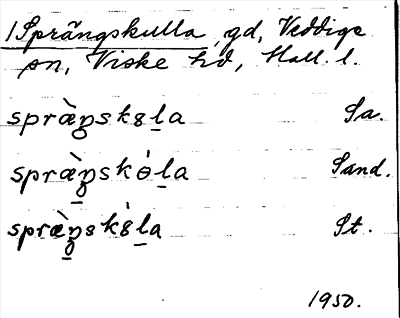 1 Sprängskulla, gd, Veddige
sn, Viske hd, Hall. l.
spræ̀ŋsk8l̠a Sa.
spræ̀ŋ̠skɵ́l̠a Sand.
spræ̀ŋ̠sk8́l̠a St.
1950.